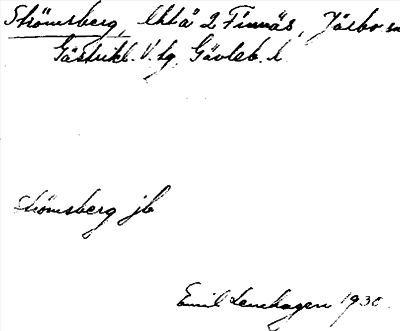 Strömsberg, Åbtä 2 Finnäs, Järbo sn
Gästrikl. V. tg, Gävleb. l.
Strömsberg jb
Emil Lenhagen 1930.